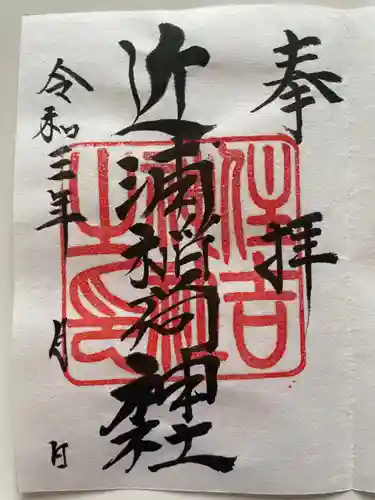 奉拝
近浦稲荷神社
令和三年 月 日
住吉